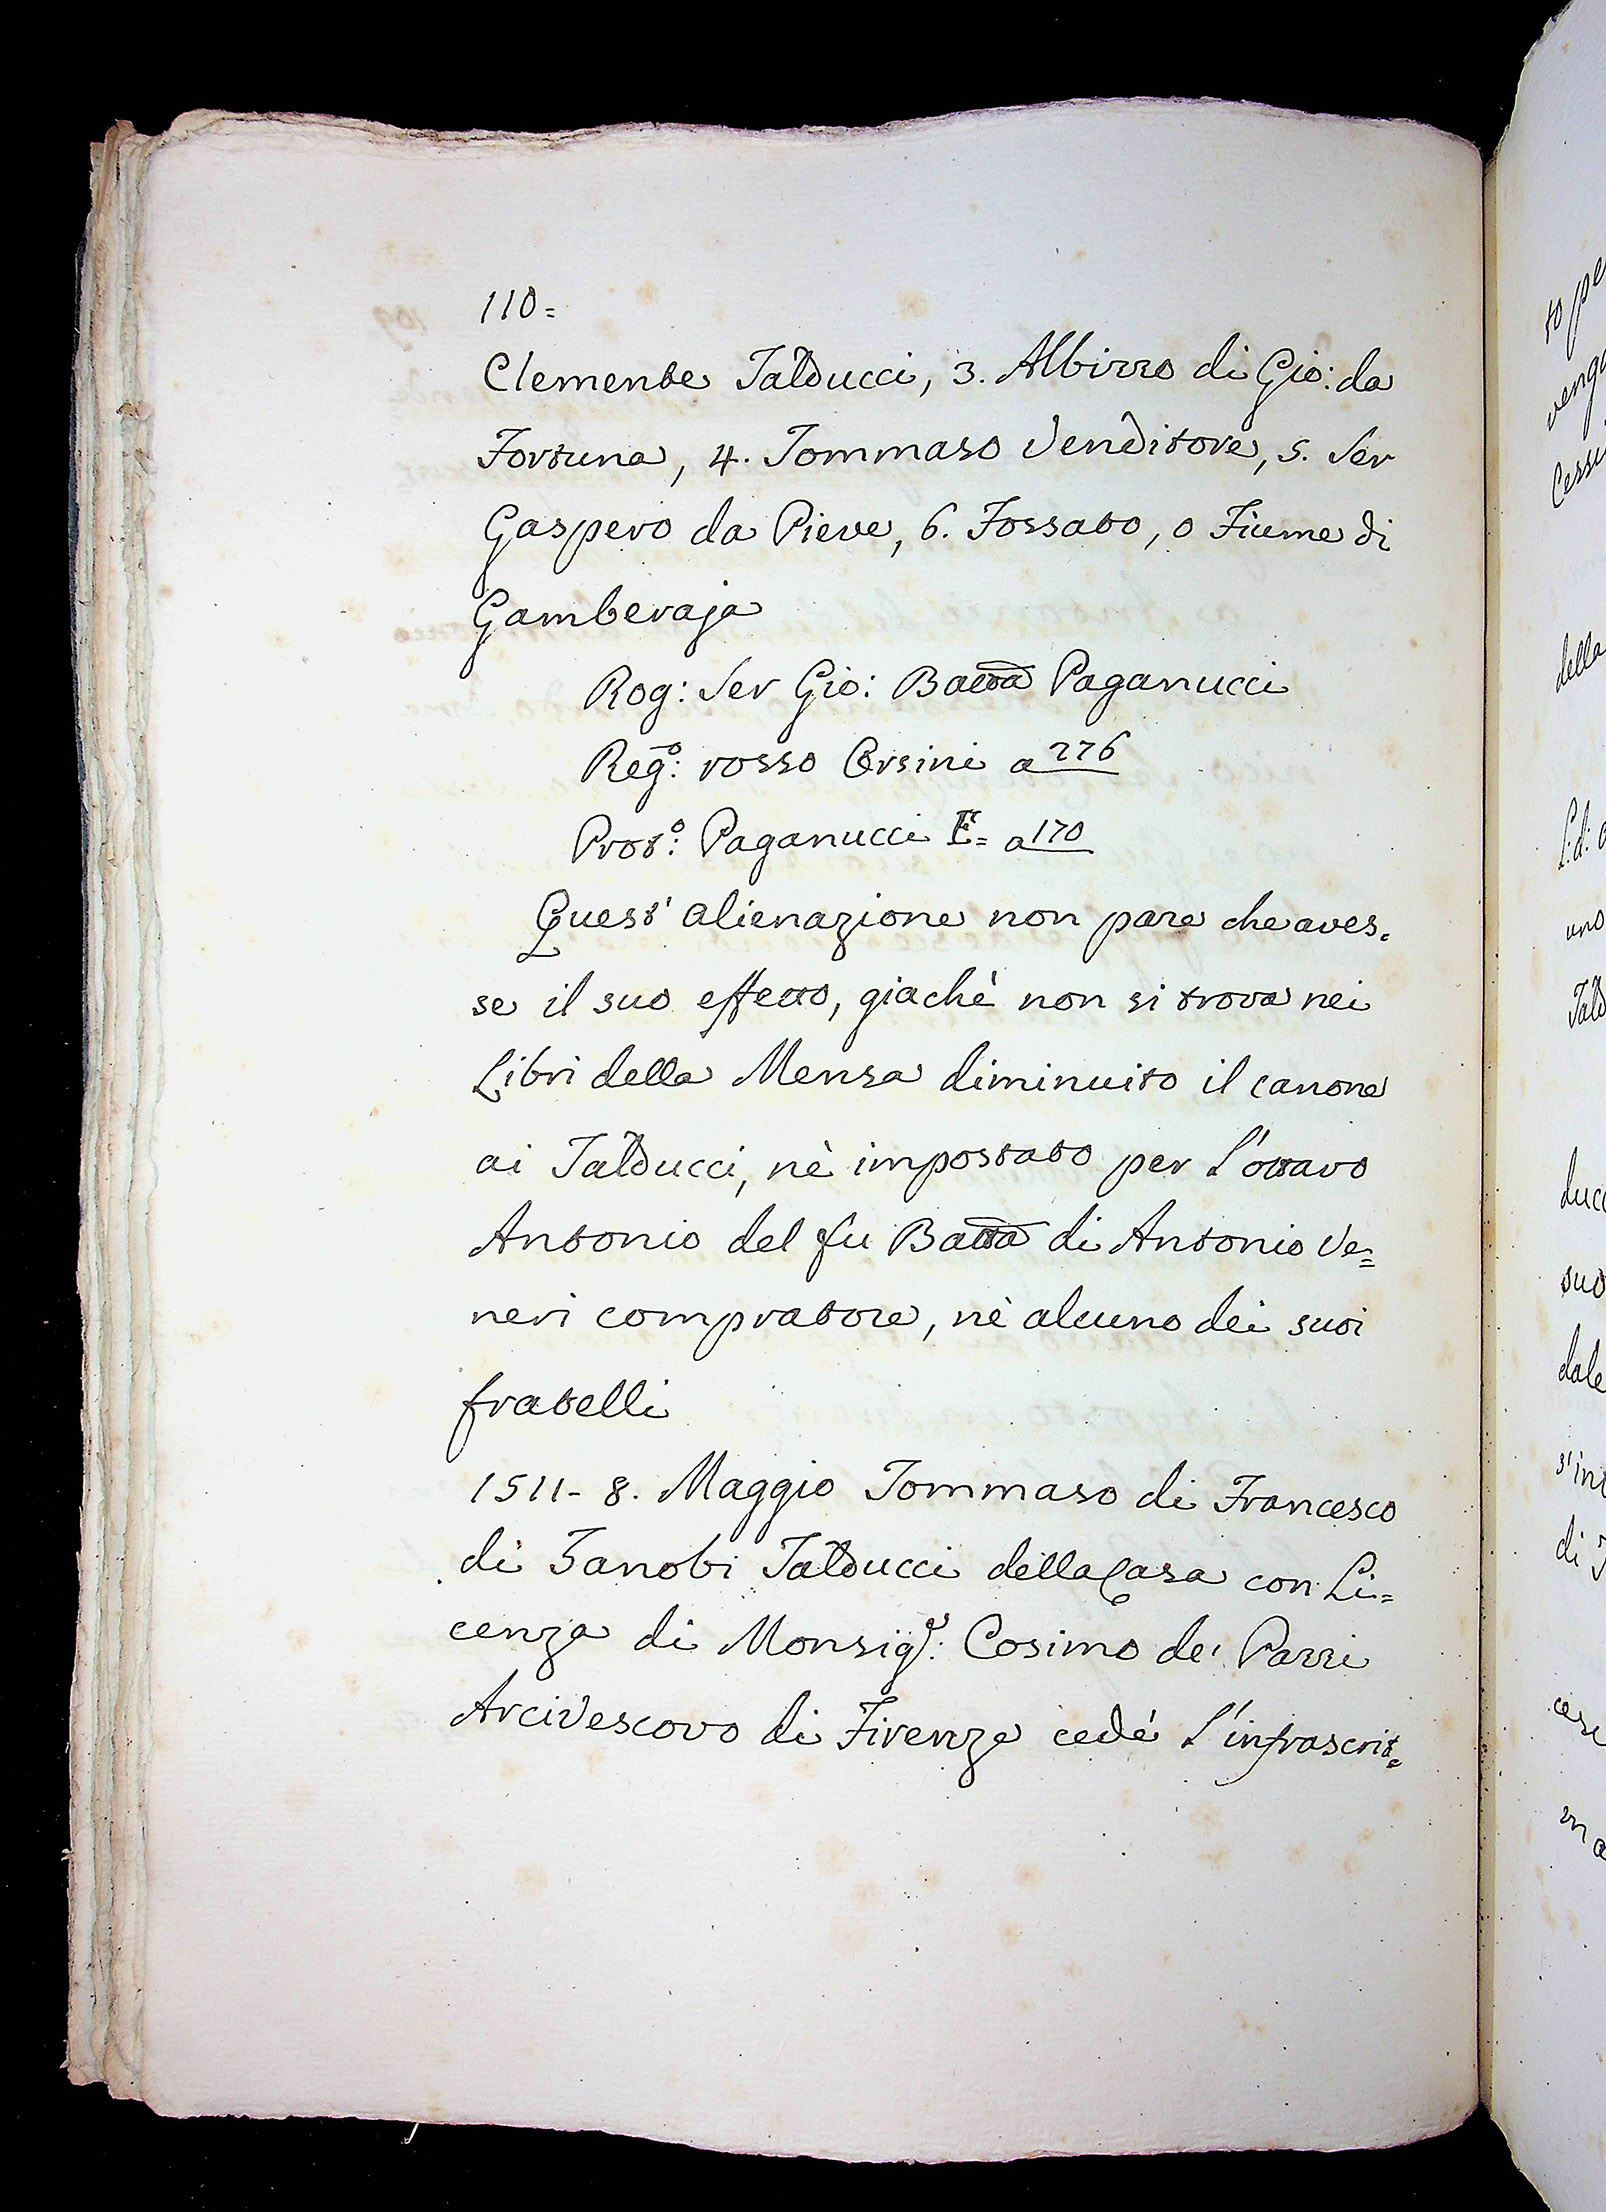 110=
Clemente Talducci, 3. Albizzo di Gio: da
Fortuna, 4. Tommaso Venditore, 5. Ser
Gaspero da Pieve, 6. Fossato, o Fiume di
Gamberaja
Rog: Ser Gio: Batta Paganucci
Reg.o: rosso Orsini a 276
Prot.o: Paganucci E= a 170
Quest' alienazione non pare che aves=
se il suo effetto, giachè non si trova nei
Libri della Mensa diminuito il canone
ai Talducci, nè impostato per l'ottavo
Antonio del fu Batta di Antonio Ve=
neri compratore, nè alcuno dei suoi
fratelli
1511- 8. Maggio Tommaso di Francesco
di Zanobi Talducci della Casa con Li=
cenza di Monsig.e: Cosimo de' Pazzi
Arcivescovo di Firenze cedé l'infrascrit=